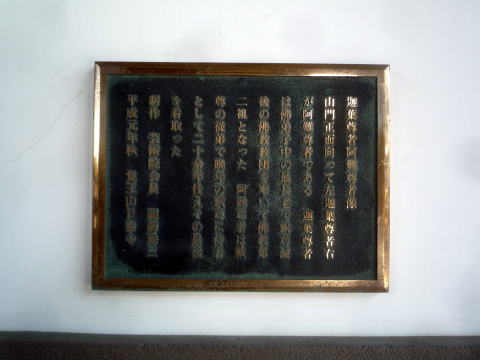 迦葉尊者阿難尊者像
山門正面向って左迦葉尊者右
が阿難尊者である　迦葉尊者
は佛弟子中の最長老で釈尊滅
後の佛教教団を率いて佛教第
二祖となった　阿難尊者は釈
尊の従弟で
として二十余年
を看取った
制作　会員
平成元年秋　覚王山日泰寺